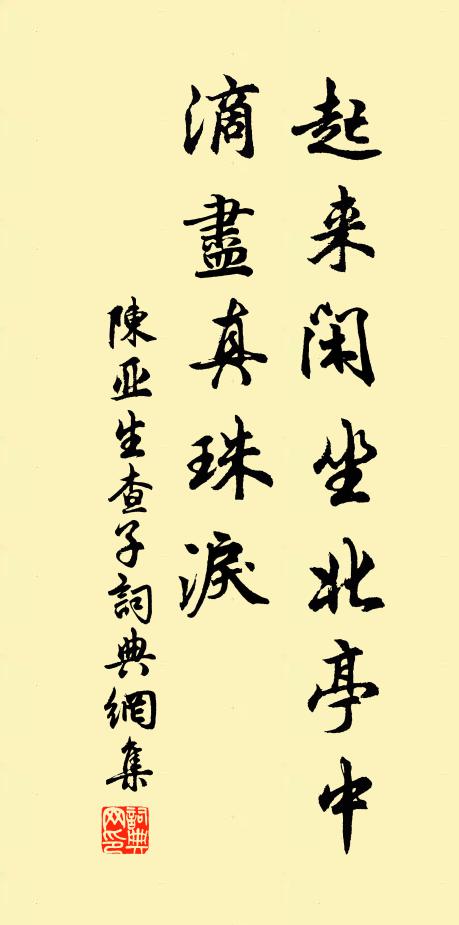 起来闲坐北亭中
滴盡真珠淚
陳亚生查子詞典網集
詞典網印